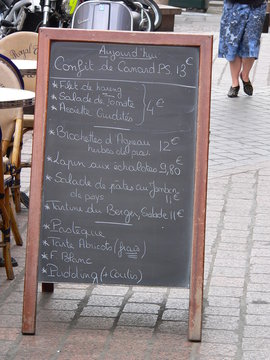 Aujourd'hui
Confit de Canard P.S. 13€
* Filet de hareng
* Salade de tomate
* Assiette Crudités
4€
* Brochettes d'Agneau 12€
herbes de prov.
* Lapin aux échalotes 9,80€
* Salade de pâtes au Jambon
de pays 11€
* Tartine du Berger, Salade 11€
* Pastèque
* Tarte Abricots (frais)
* F. Blanc
* Pudding (+ Coulis)